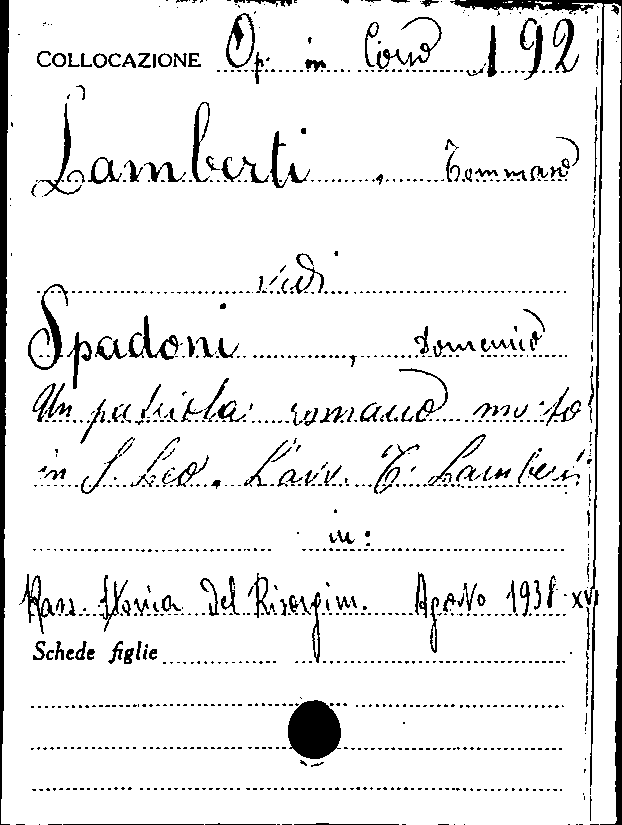 COLLOCAZIONE Op. in Corso 192
Lamberti, Tommaso
vedi
Spadoni, Domenico
Un patriota romano morto
in S. Leo. L'avv. T. Lamberti
in:
Rass. Storica del Risorgim. Agosto 1938-XVI
Schede figlie